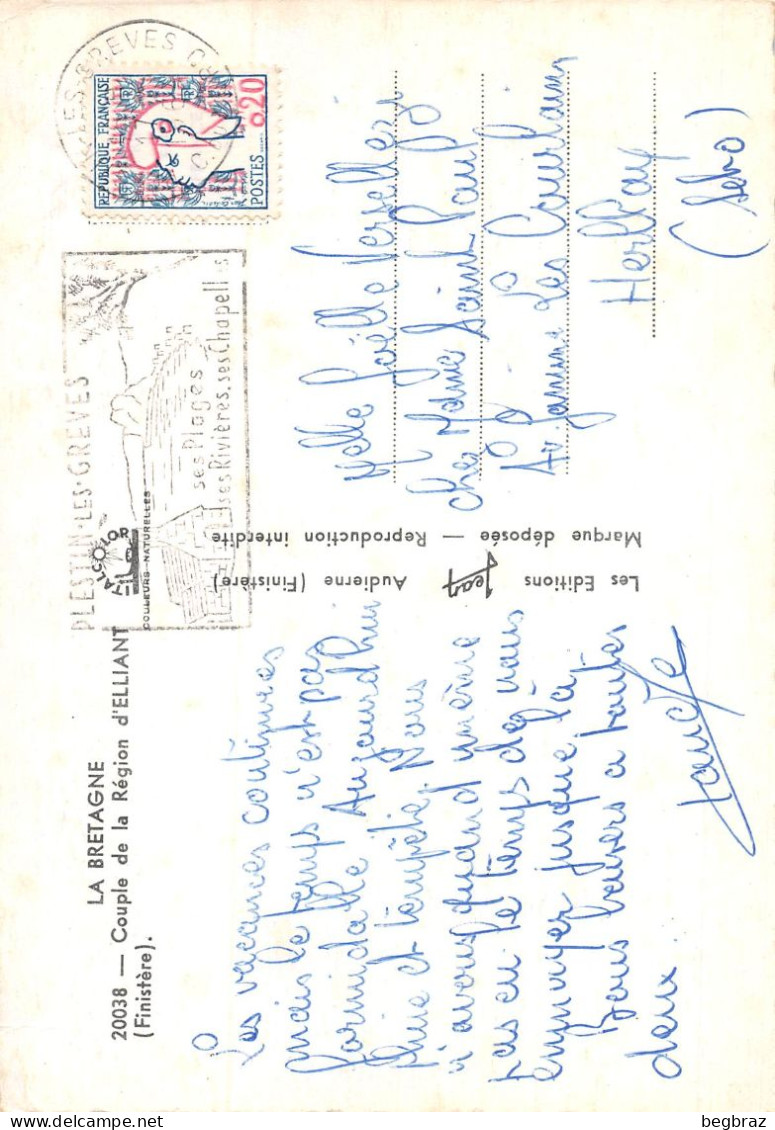 LA BRETAGNE
20038 — Couple de la Région d'ELLIANT
(Finistère).
COULEURS NATURELLES
Les vacances continues
mais le temps n'est pas
formidable Aujourd'hui
pluie et tempête. Nous
n'avons quand même
pas eu le temps de vous
envoyer jusque là
Bons baisers a toutes
deux.
Les Editions Jean Audierne (Finistère)
Marque déposée — Reproduction interdite
PLESTIN-LES-GRÈVES
ses Plages
ses Rivières, ses Chapelles
RÉPUBLIQUE FRANÇAISE
0,20
POSTES
Melle Joëlle
chez Mame Saint Paul
Av. Jeanne Les Courlains
Herblay
(S&O)
begbraz